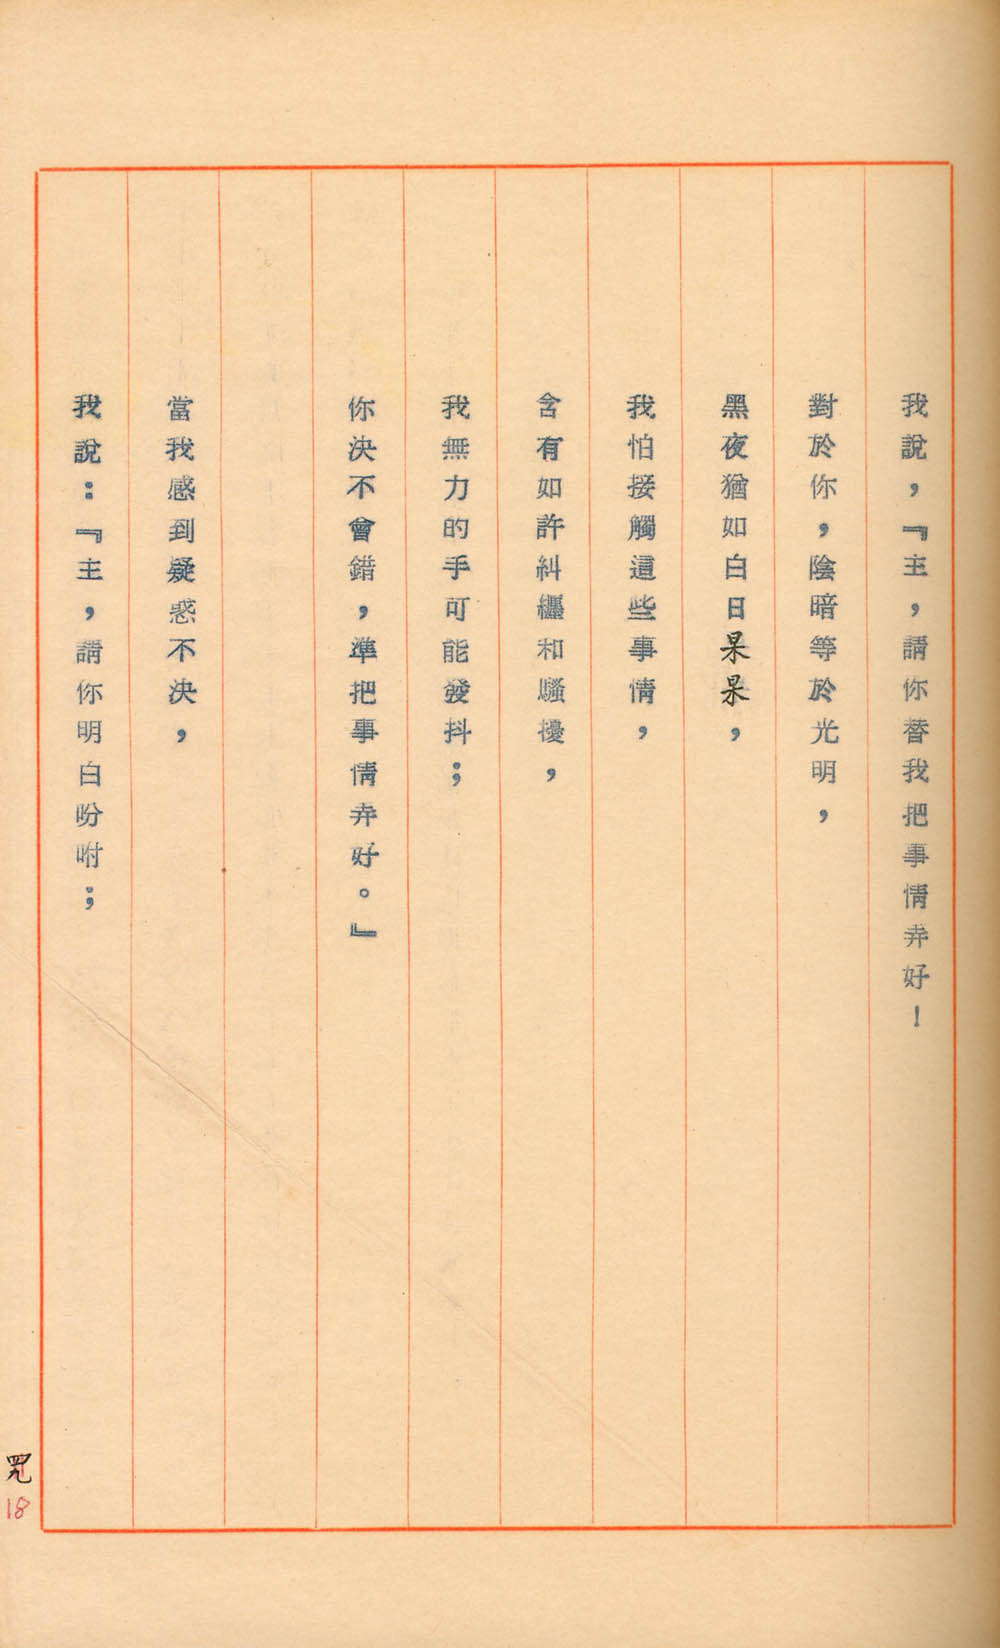 我說，『主，請你替我把事情弄好！
對於你，陰暗等於光明，
黑夜猶如白日杲杲，
我怕接觸這些事情，
含有如許糾纏和騷擾，
我無力的手可能發抖；
你決不會錯，準把事情弄好。』
當我感到疑惑不決，
我說：『主，請你明白吩咐；
四九
18